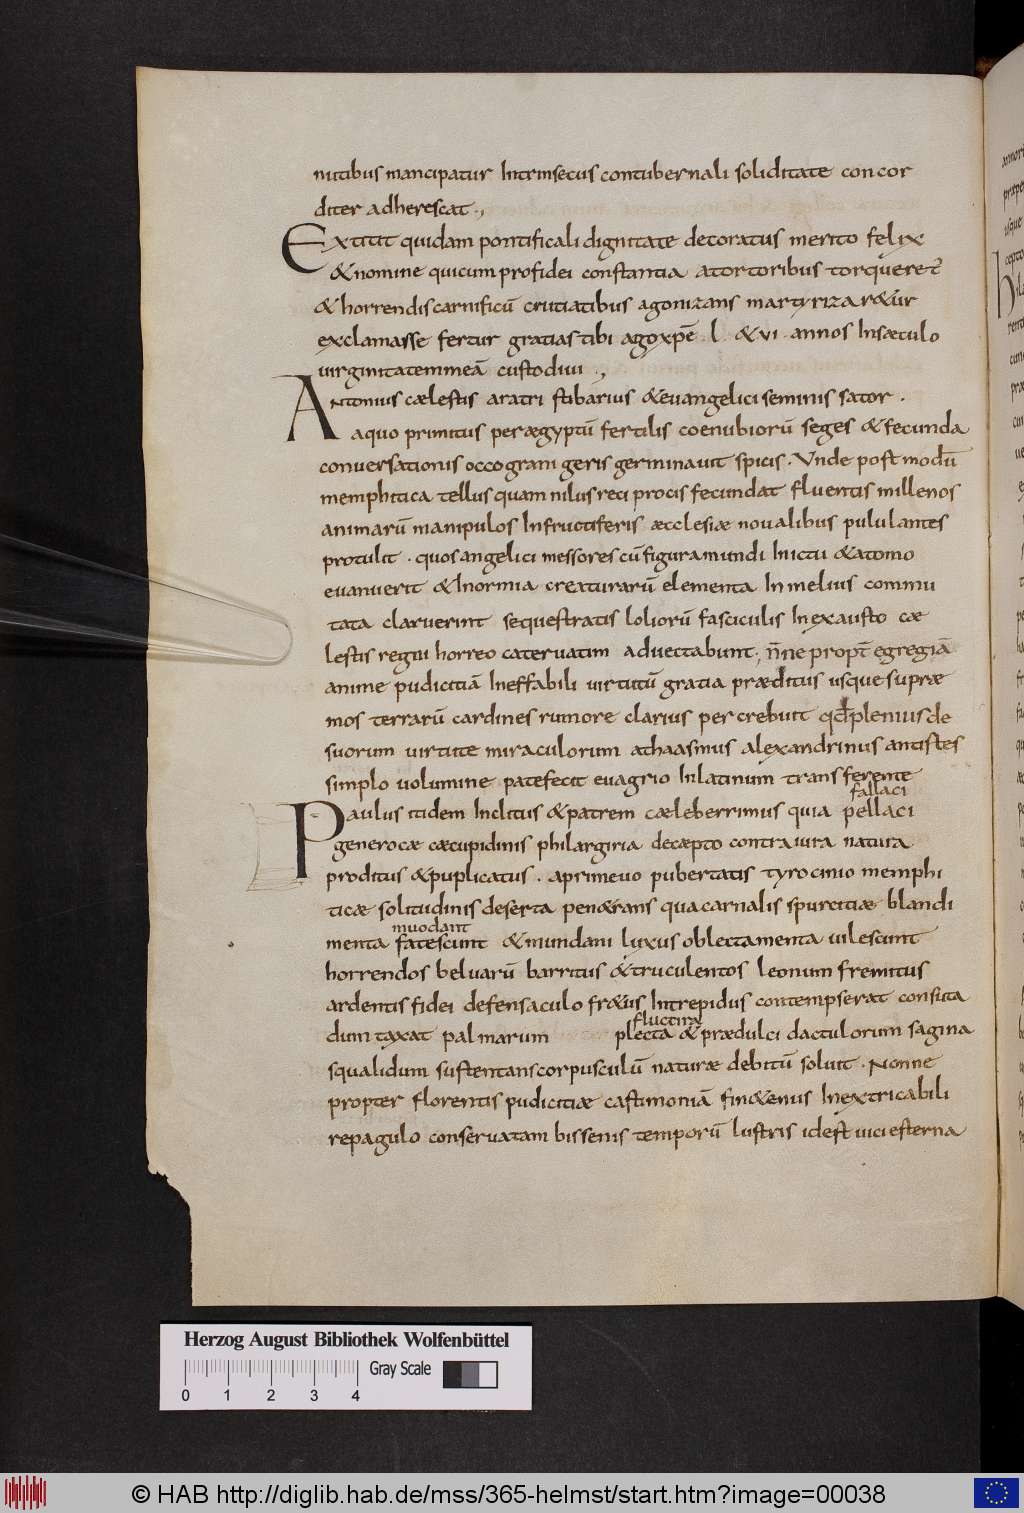 nitibus mancipatur Intrinsecus contubernali soliditate concor
diter adherescat.,
Extitit quidam pontificali dignitate decoratus merito felix
& nomine qui cum pro fidei constantia a tortoribus torqueret̄
& horrendis carnificū crutiatibus agonizans martyrizar&ur
exclamasse fertur gratias tibi ago xpē . l . & vi . annos In sæculo
uirginitatem meā custodiui .,
Antonius cælestis aratri stibarius & euangelici seminis sator .
a quo primitus per ægyptū fertilis coenubiorū seges & fecunda
conuersationis occo grani geris germinauit spicis . Vnde post modū
memphitica tellus quam nilus reciprocis fecundat fluentis millenos
animarū manipulos In fructiferis æcclesiæ noualibus pululantes
protulit . quos angelici messores cū figura mundi In ictu & atomo
euanuerit & In ormia creaturarū elementa In melius commu
tata claruerint sequestratis loliorū fasciculis In exausto cæ
lestis regni horreo cateruatim aduectabunt ; n̄ne propt̄ egregiā
anime pudicitiā Ineffabili uirtutū gratia præditus usque supræ
mos terrarū cardines rumore clarius percrebuit qd̄ plenius de
suorum uirtute miraculorum athaasmus alexandrinus antistes
simplo uolumine patefecit euagrio In latinum transferente
fallaci
Paulus itidem Inclitus & patrem cæleberrimus quia pellaci
generocæ cæcupidinis philargiria decæpto contra iura natura
proditus & puplicatus . a primeuo pubertatis tyrocinio memphi
ticæ solitudinis deserta pen&rans qua carnalis spurcitiæ blandi
muodant
menta fatescunt & mundani luxus oblectamenta uilescunt
horrendos beluarū barritus & truculentos leonum fremitus
ardentis fidei defensaculo fr&us Intrepidus contempserat consita
fluctira
dum taxat palmarum plecta & prædulci dactulorum sagina
squalidum sustentans corpusculū naturæ debitū soluit . Nonne
propter florentis pudicitiæ castimoniā fin&enus Inextricabili
repagulo conseruatam bissenis temporū lustris id est uicies terna
Herzog August Bibliothek Wolfenbüttel
Gray Scale
0 1 2 3 4
© HAB http://diglib.hab.de/mss/365-helmst/start.htm?image=00038